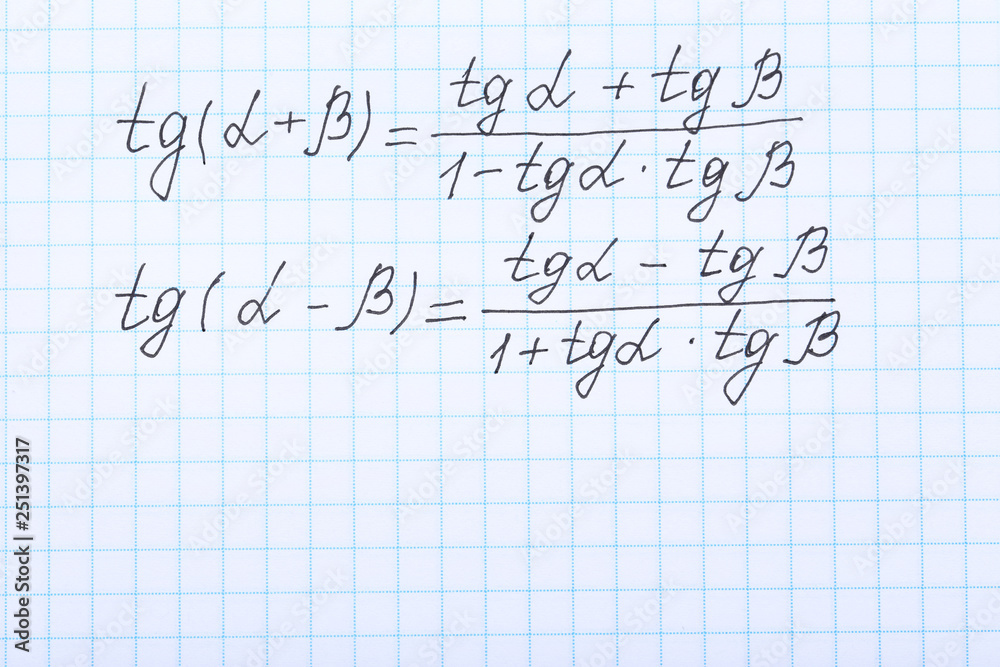 tg(α+β) = (tgα + tgβ) / (1 - tgα · tgβ)
tg(α - β) = (tgα - tgβ) / (1 + tgα · tgβ)
Adobe Stock | #251397317